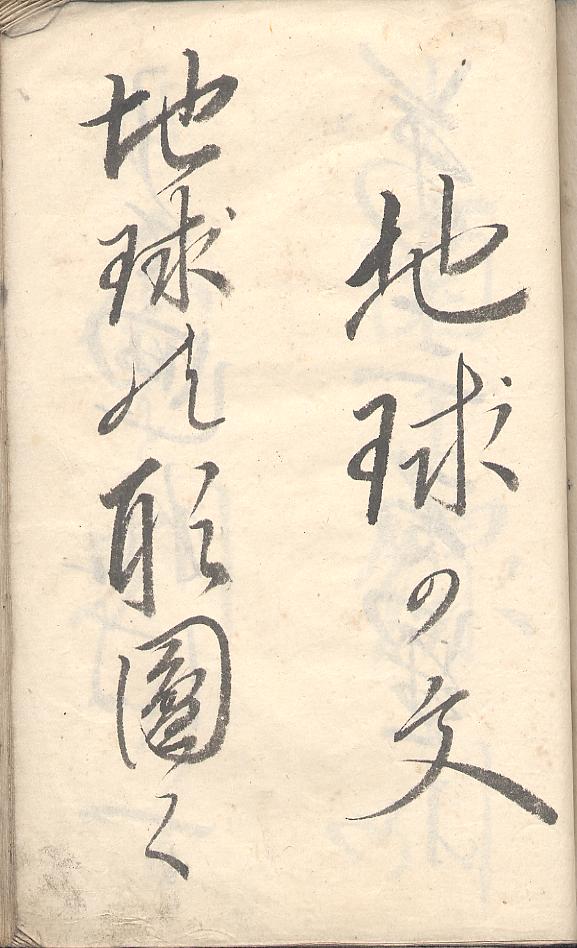 地球の文
地球の形圓く